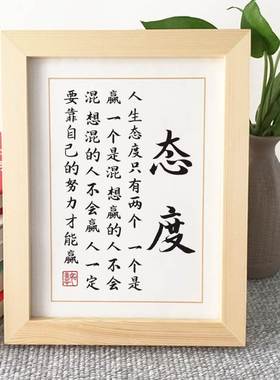 态度
人生态度只有两个 一个是
赢一个是混想赢的人不会
混想混的人不会赢人一定
要靠自己的努力才能赢